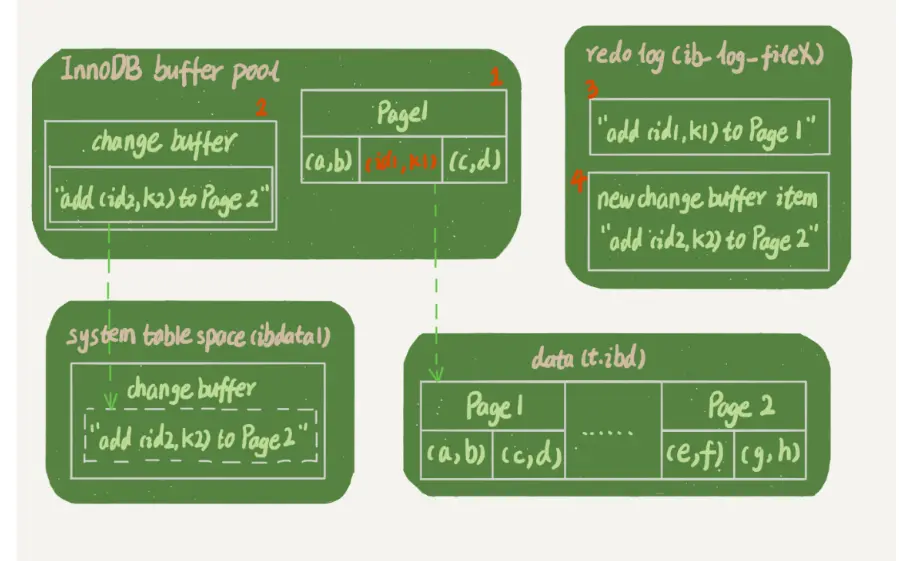 InnoDB buffer pool
2
change buffer
"add (id2,k2) to Page 2"
1
Page1
(a,b) (id1,k1) (c,d)
redo log (ib-log-fileX)
3
"add (id1,k1) to Page 1"
4
new change buffer item
"add (id2,k2) to Page 2"
system table space (ibdata1)
change buffer
"add (id2,k2) to Page 2"
data (t.ibd)
Page1 ...... Page 2
(a,b) (c,d) (e,f) (g,h)